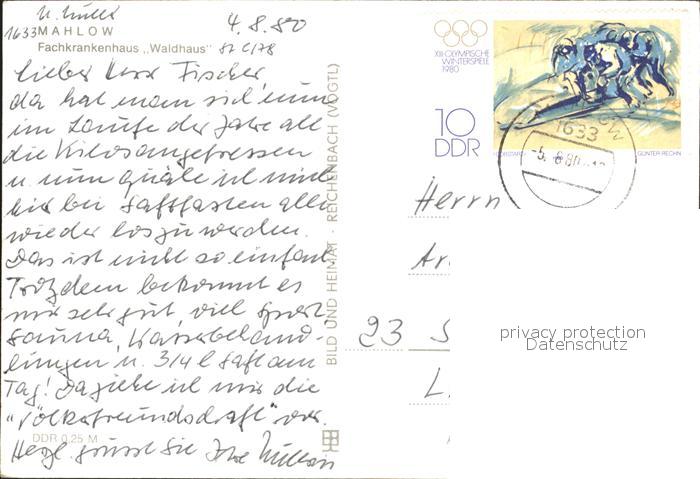 4.8.80
1633 MAHLOW
Fachkrankenhaus „Waldhaus"
Lieber Herr Fischer
da hat man sich nun
im Laufe der Jahre all
die Kilos angefressen
u. nun quäle ich mich
hier bei Saftfasten alles
wieder loszuwerden.
Das ist nicht so einfach
Trotzdem bekommt es
mir sehr gut, viel Sport
Sauna, Wasserbehand-
lungen u. 3/4 l Saft am
Tag! Da ziehe ich mir die
"Völkerfreundschaft" vor.
Herzl. grüsst Sie Ihre
DDR 0,25 M
BILD UND HEIMAT · REICHENBACH (VOGTL)
XIII. OLYMPISCHE
WINTERSPIELE
1980
10
DDR
GÜNTER RECHN
1633
Herrn
23 S
L
privacy protection
Datenschutz